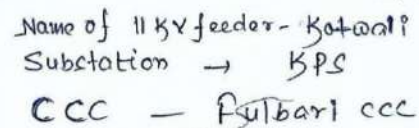 Name of 11 KV feeder - Kotwali
Substation → KPS
CCC — Fulbari CCC